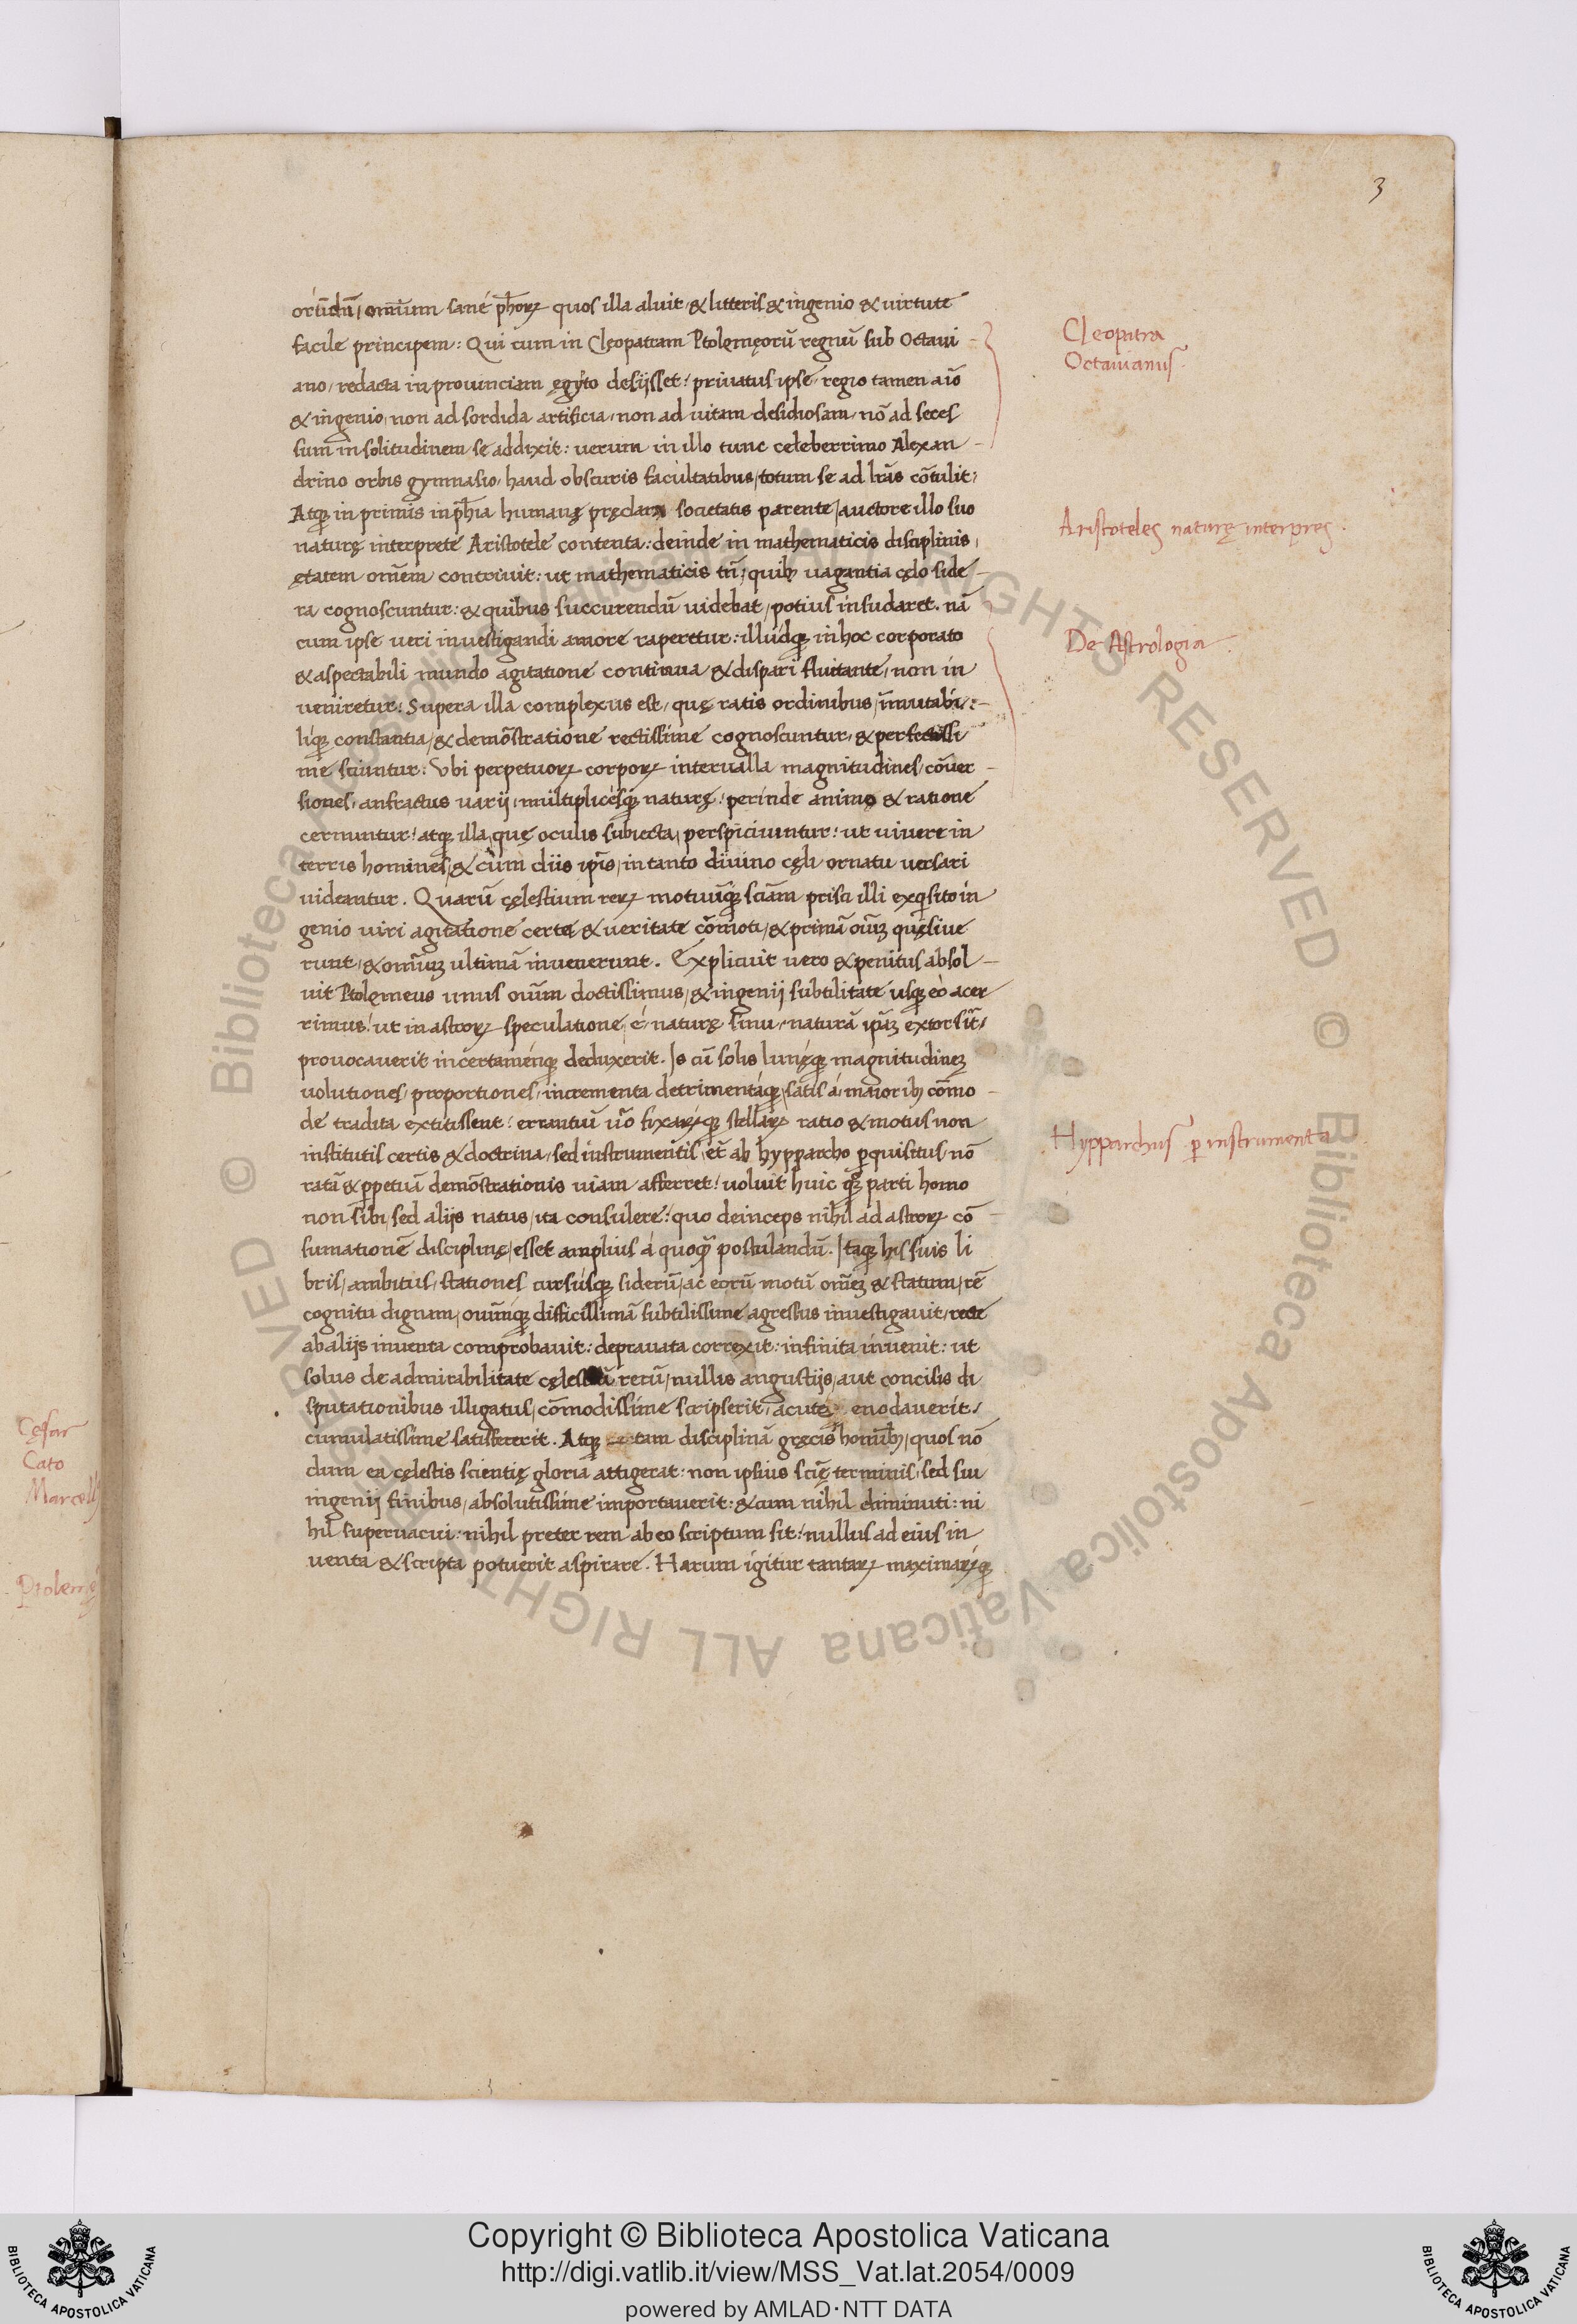 3
ortũdũ, omnĩum sané ph̃orꝝ quos illa aluit, & litteris & ingenio & uirtute
facile principem: Qui cum in Cleopatram Ptolemęorũ regnũ sub Octaui-
ano, redacta in prouinciam ęgyto desijsset: priuatus ipse, regio tamen aĩo
& ingenio, non ad sordida artificia, non ad uitam desidiosam, nõ ad seces
sum in solitudinem se addixit: uerum in illo tunc celeberrimo Alexan-
drino orbis gymnasio, haud obscuris facultatibus, totum se ad lr̃as cõtulit:
Atqꝫ in primis in ph̃ia humanę pręclara societatis parente, auctore illo suo
naturę interprete Aristotele contenta: deinde in mathematicis disciplinis,
ętatem omẽm contriuit: ut mathematicis tñ, quibꝫ uagantia cęlo side-
ra cognoscuntur: & quibus succurendũ uidebat, potius insudaret. nã
cum ipse ueri inuestigandi amore raperetur: illudqꝫ in hoc corporato
& aspectabili mundo agitatione continua & dispari fluitante, non in
ueniretur: Supera illa complexus est, quę ratis ordinibus, ĩmutabi-
liqꝫ constantia, & demõstratione rectissime cognoscuntur, & perfectissi
me sciuntur: Vbi perpetuorꝝ corporꝝ interualla magnitudines, cõuer-
siones, anfractus uarij, multiplicesqꝫ naturę: perinde animo & ratione
cernuntur: atqꝫ illa, quę oculis subiecta, perspiciuntur: ut uiuere in
terris homines, & cum diis ip̃is, in tanto diuino cęli ornatu uersari
uideantur. Quarũ cęlestium rerꝝ motuũqꝫ sciãm prisci illi exqisito in
genio uiri agitatione certa & ueritate cõmoti, & primã oĩũꝫ quęsiue
runt, & omĩũꝫ ultimã inuenerunt. Explicuit uero & penitus absol-
uit Ptolemeus unus oĩum doctissimus, & ingenij subtilitate usqꝫ eò acer
rimus: ut in astrorꝝ speculatione, é naturę sinu, naturã ip̃aꝫ extorsit̃,
prouocauerit incertamenqꝫ deduxerit. Is cũ solis lunęqꝫ magnitudineꝫ
uolutiones, proportiones, incrementa detrimentaqꝫ, satis á maioribꝫ cõmo-
de tradita extitissent: errantiũ ũo fixarꝝqꝫ stellarꝝ ratio & motus non
institutis certis & doctrina, sed instrumentis, et̃ ab hypparcho ꝑquisitus, nõ
ratã & ꝑpetuã demõstrationis uiam afferret: uoluit huic qꝫ parti homo
non sibi, sed alijs natus, ita consulere: quo deinceps nihil ad astrorꝝ cõ-
sumationẽ disciplinę, esset amplius á quoqꝫ̃ postulandũ. Itaqꝫ his suis li
bris, ambitus, stationes cursusqꝫ siderũ, ac eorũ motũ om̃eꝫ & statum, rẽ
cognitu dignam, oĩumqꝫ difficillimã subtilissime agressus inuestigauit, recte
ab alijs inuenta comprobauit: deprauata correxit: infinita inuenit: ut
solus de admirabilitate cęlestiũ rerũ, nullis angustijs, aut concisis di
sputationibus illigatus, cõmodissime scripserit, acute, enodauerit,
cumulatissime satisfecerit. Atqꝫ tam disciplinã gręcis homĩbꝫ, quos nõ
dum ea cęlestis scientię gloria attigerat: non ipsius sciẽ terminis, sed sui
ingenij finibus, absolutissime importauerit: & cum nihil diminuti: ni
hil superuacui: nihil preter rem ab eo scriptum sit: nullus ad eius in
uenta & scripta potuerit aspirare. Harum igitur tantarꝝ maximarꝝqꝫ
Cleopatra
Octauianus.
Aristoteles naturę interpres.
De Astrologia.
Hypparchus ꝑ instrumenta
Cęsar
Cato
Marcell
Ptolemę
© Biblioteca Apostolica Vaticana ALL RIGHTS RESERVED © Biblioteca Apostolica Vaticana ALL RIGHTS RESERVED
Copyright © Biblioteca Apostolica Vaticana
http://digi.vatlib.it/view/MSS_Vat.lat.2054/0009
powered by AMLAD·NTT DATA
BIBLIOTECA APOSTOLICA VATICANA
BIBLIOTECA APOSTOLICA VATICANA